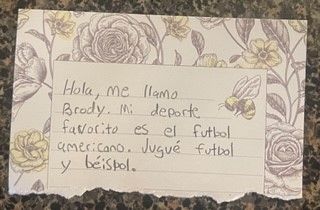 Hola, me llamo
Brody. Mi deporte
favorito es el futbol
americano. Jugué futbol
y béisbol.